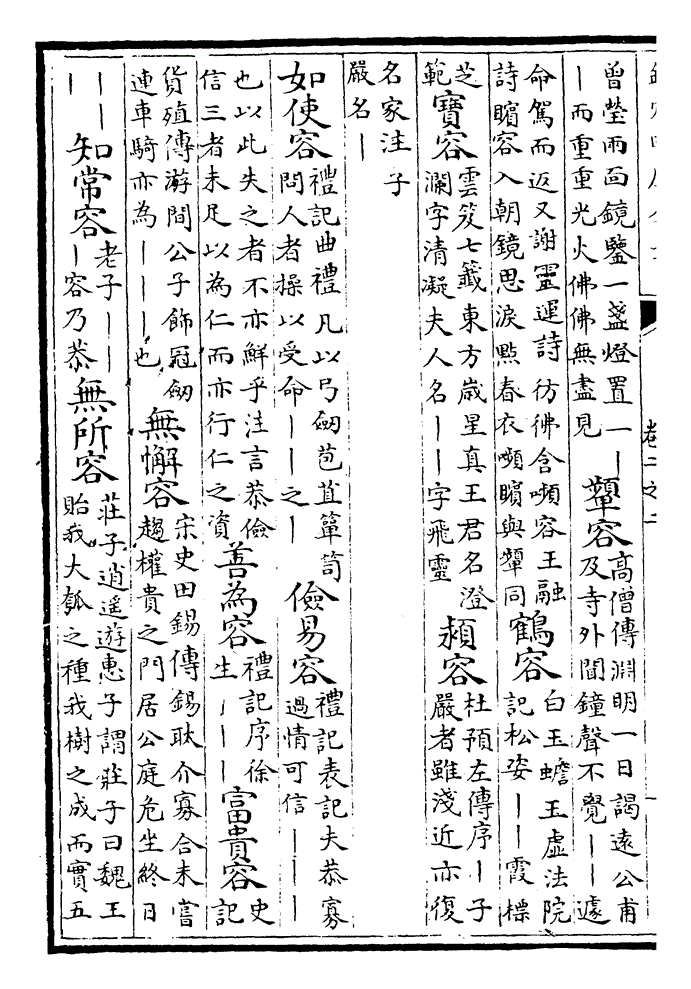 卷二之二
曾瑩兩面鏡鑒一盞燈置一丨
丨而重重光火佛佛無盡見
顰容
高僧傳淵明一日謁遠公甫
及寺外聞鐘聲不覺丨丨遽
命駕而返又謝靈運詩彷彿含嚬容王融
詩矉容入朝鏡思淚點春衣嚬矉與顰同
鶴容
白玉蟾玉虛法院
記松姿丨丨霞標
芝
範
寶容
雲笈七籖東方歲星真王君名澄
瀾字清凝夫人名丨丨字飛靈
潁容
杜預左傳序丨子
嚴者雖淺近亦復
名家注子
嚴名丨
如使容
禮記曲禮凡以弓劒苞苴簞笥
問人者操以受命丨丨之丨
儉易容
禮記表記夫恭寡
過情可信丨丨丨
也以此失之者不亦鮮乎注言恭儉
信三者未足以為仁而亦行仁之資
善為容
禮記序徐
生丨丨丨
富貴容
史
記
貨殖傳游閒公子飾冠劒
連車騎亦為丨丨丨也
無懈容
宋史田錫傳錫耿介寡合未嘗
趨權貴之門居公庭危坐終日
丨丨
丨
知常容
老子丨丨
丨容乃恭
無所容
莊子逍遥遊惠子謂莊子曰魏王
貽我大瓠之種我樹之成而實五